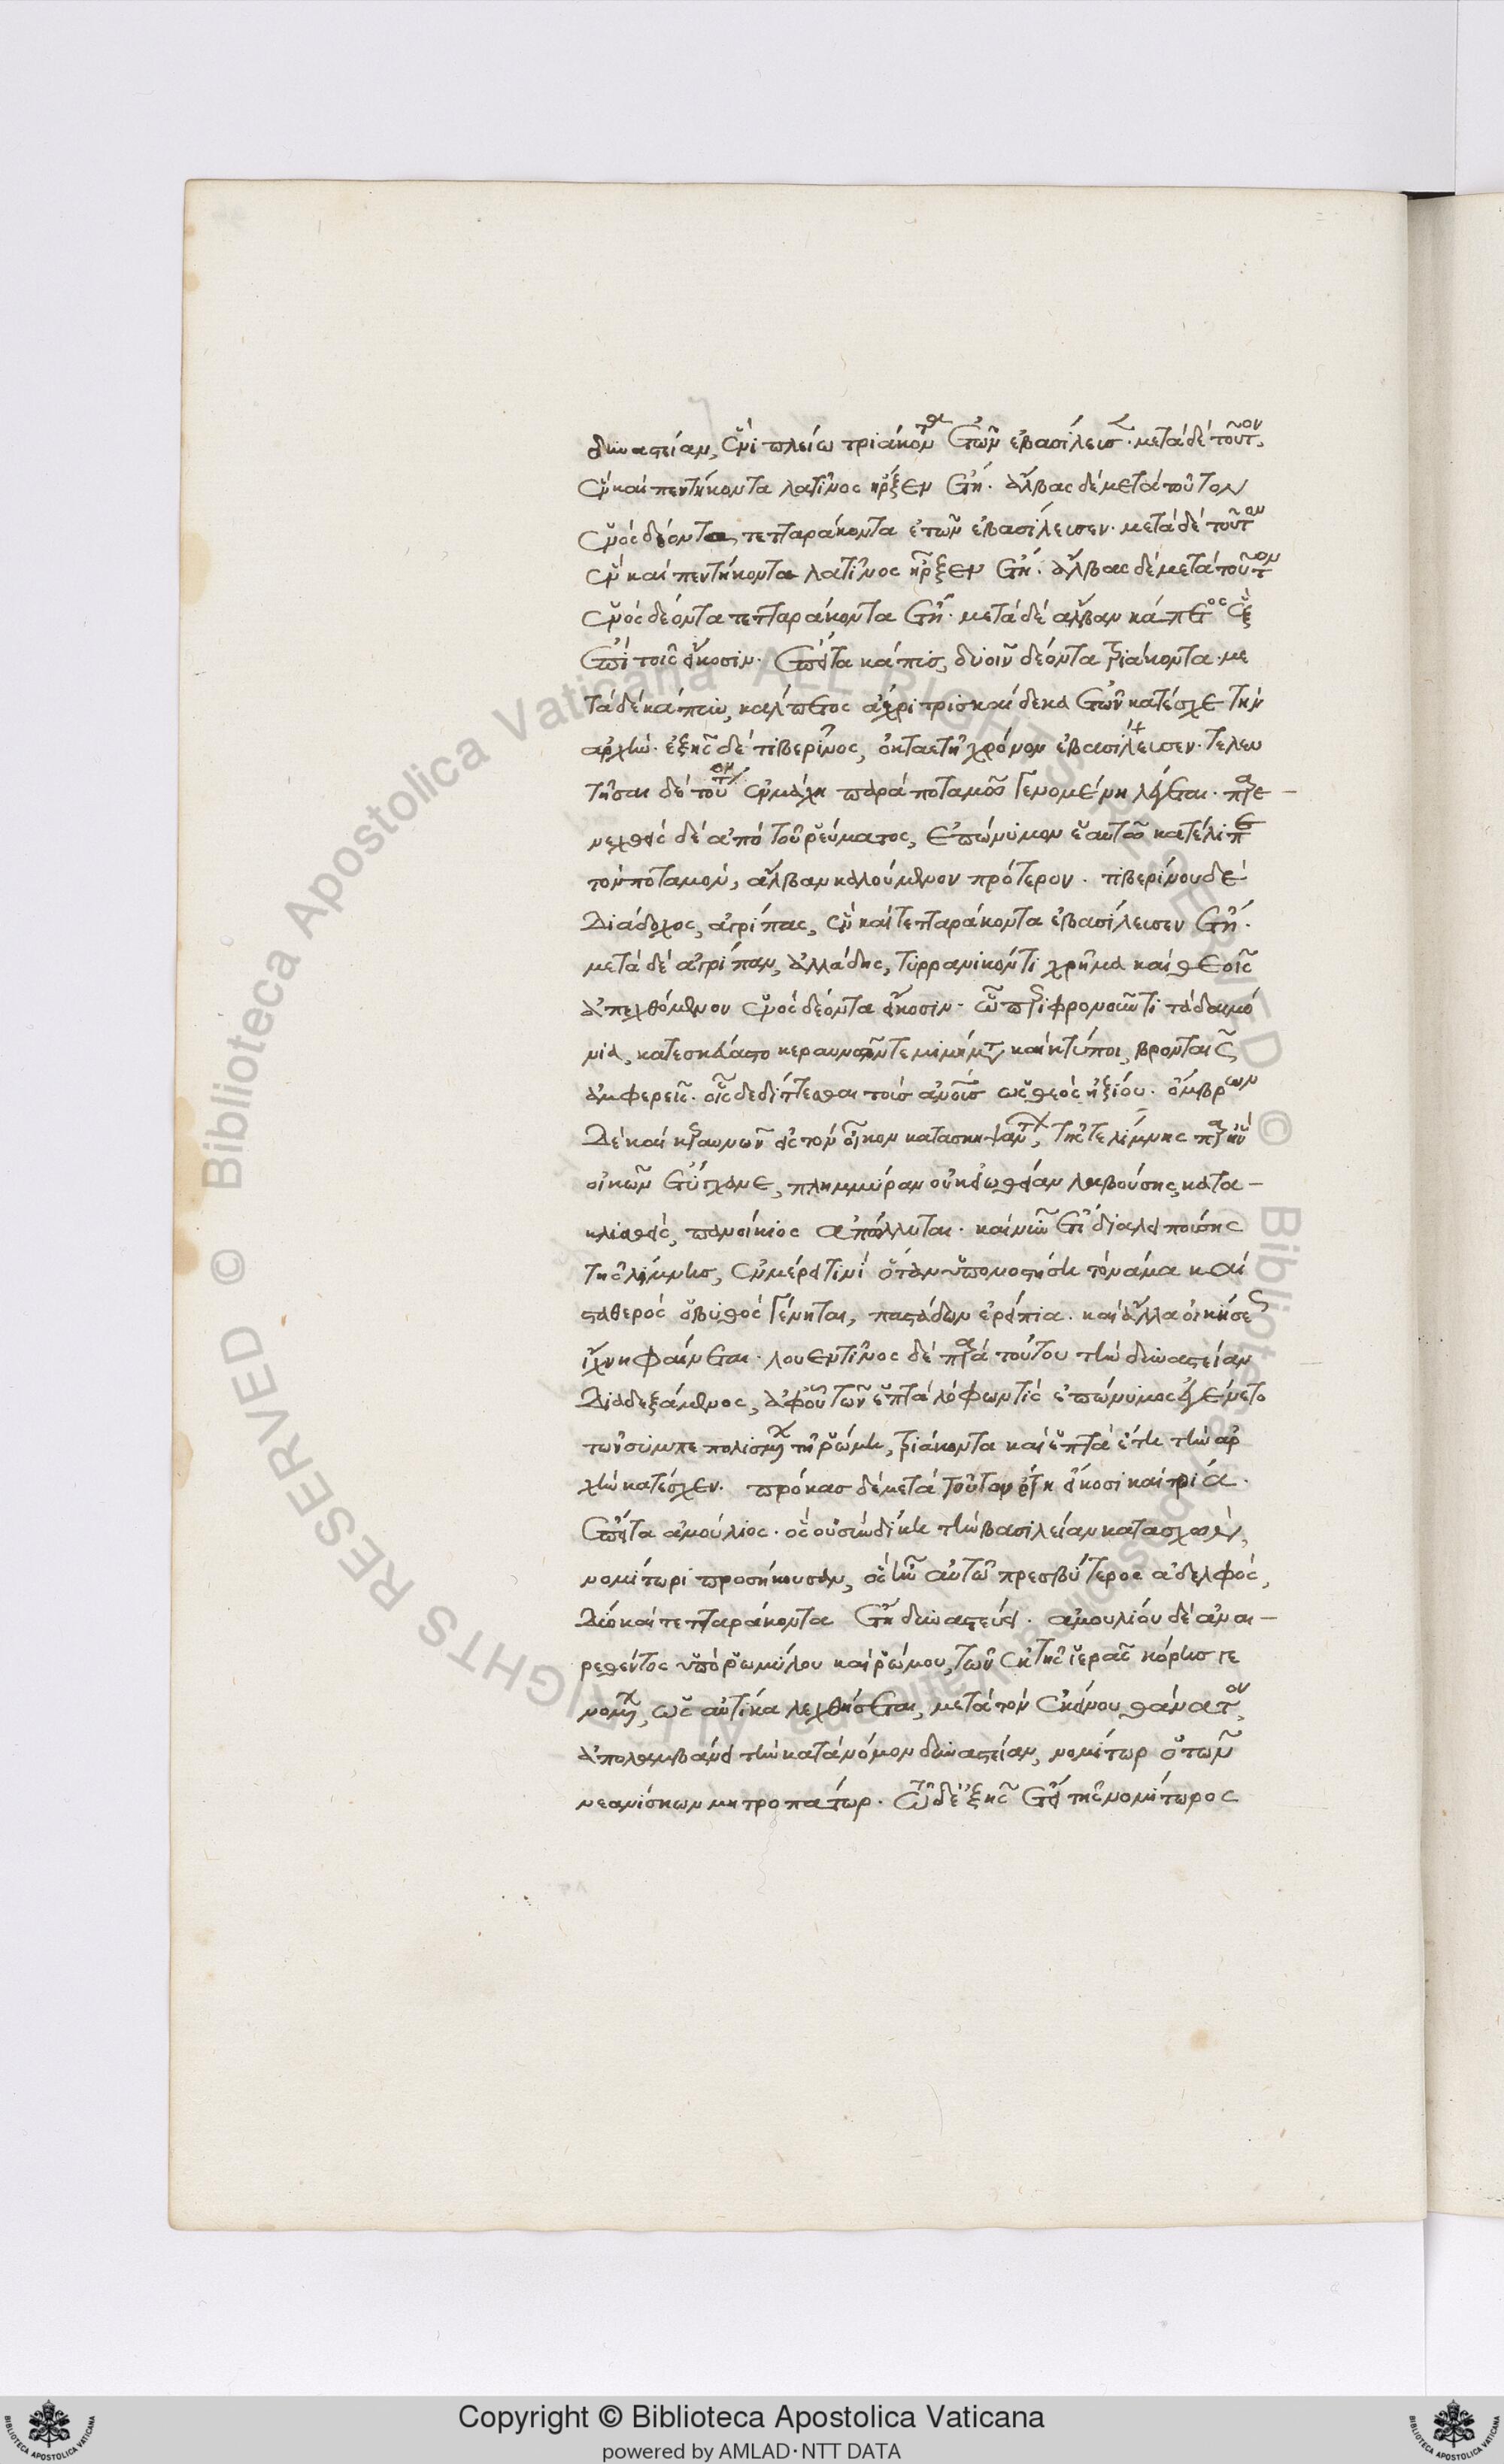 δυναστείαν, ἑνὶ πλείω τριάκοντα ἐτῶν ἐβασίλευσε. μετὰ δὲ τοῦτον,
ἓν καὶ πεντήκοντα λατῖνος ἦρξεν ἔτη. ἄλβας δὲ μετὰ τοῦτον
ἑνὸς δέοντα, τετταράκοντα ἐτῶν ἐβασίλευσεν. μετὰ δὲ τοῦτον
ἓν καὶ πεντήκοντα λατῖνος ἦρξεν ἔτη. ἄλβας δὲ μετὰ τοῦτον
ἑνὸς δέοντα τετταράκοντα ἔτη. μετὰ δὲ ἄλβαν κάπετος ἓξ
ἐπὶ τοῖς εἴκοσιν. ἔπειτα κάπις, δυοῖν δέοντα τριάκοντα. με
τὰ δὲ κάπιν, κάλπετος ἄχρι τρισκαίδεκα ἐτῶν κατέσχε τὴν
ἀρχὴν. ἑξῆς δὲ τιβερῖνος, ὀκταετῆ χρόνον ἐβασίλευσεν. τελευ
τῆσαι δὲ τοῦτον ἐν μάχη παρὰ ποταμῶ γενομένη λέγεται. παρε
νεχθεὶς δὲ ἀπὸ τοῦ ῥεύματος, ἐπώνυμον ἑαυτῶ κατέλιπε
τὸν ποταμὸν, ἄλβαν καλούμενον πρότερον. τιβερίνου δὲ
διάδοχος, ἀγρίπας, ἓν καὶ τετταράκοντα ἐβασίλευσεν ἔτη.
μετὰ δὲ ἀγρίπαν, ἀλλάδης, τυρρανικόν τι χρῆμα καὶ θεοῖς
ἀπεχθόμενον ἑνὸς δέοντα εἴκοσιν. ὧ περιφρονοῦντι τὰ δαιμό
νια, κατεσκεύαστο κεραυνῶν τε μιμήματα καὶ κτύποι, βρονταῖς
ἐμφερεῖς. οἷς δεδίττεσθαι τοὺς ἀνθρώπους ὡς θεὸς ἠξίου. ὄμβρων
δὲ καὶ κεραυνῶν εἰς τὸν οἶκον κατασκηψάντων, τῆς τε λίμνης παρ' ἣν
οἰκῶν ἐτύγχανε, πλημμύραν οὐκ εἰωθυῖαν λαβούσης, κατα
κλυσθεὶς, πανοίκιος ἀπόλλυται. καὶ νῦν ἔτι διαλειποίσης
τῆς λίμνης, ἐν μέρει τινὶ ὅταν ὑπονοστήση τὸ νᾶμα καὶ
σταθερὸς ὁ βυθὸς γένηται, παστάδων ἐρείπια. καὶ ἄλλα οἰκήσεως
ἴχνη φαίνεται. λουεντῖνος δὲ παρὰ τούτου τὴν δυναστείαν
διαδεξάμενος, ἀφ' οὗ τῶν ἑπτὰ λόφων τις ἐπώνυμος ἐγένετο
τῶν συμπεπολισμένων τῆ ῥώμη, τριάκοντα καὶ ἑπτὰ ἔτη τὴν ἀρ
χὴν κατέσχεν. πρόκας δὲ μετὰ τοῦτον ἔτη εἴκοσι καὶ τρία.
ἔπειτα ἀμούλιος. ὃς οὐ σὺν δίκη τὴν βασιλείαν κατασχὼν,
νομίτωρι προσήκουσαν, ὃς ἦν αὐτῶ πρεσβύτερος ἀδελφὸς,
δύο καὶ τετταράκοντα ἔτη δυναστεύει. ἀμουλίου δὲ ἀναι
ρεθέντος ὑπὸ ῥωμύλου καὶ ῥώμου, τῶν ἐκ τῆς ἱερᾶς κόρης γε
νομένων, ὡς αὐτίκα λεχθήσεται, μετὰ τὸν ἐκείνου θάνατον,
ἀπολαμβάνει τὴν κατὰ νόμον δυναστείαν, νομίτωρ ὁ τῶν
νεανίσκων μητροπάτωρ. τῶ δ' ἑξῆς ἔτει τῆς νομίτωρος